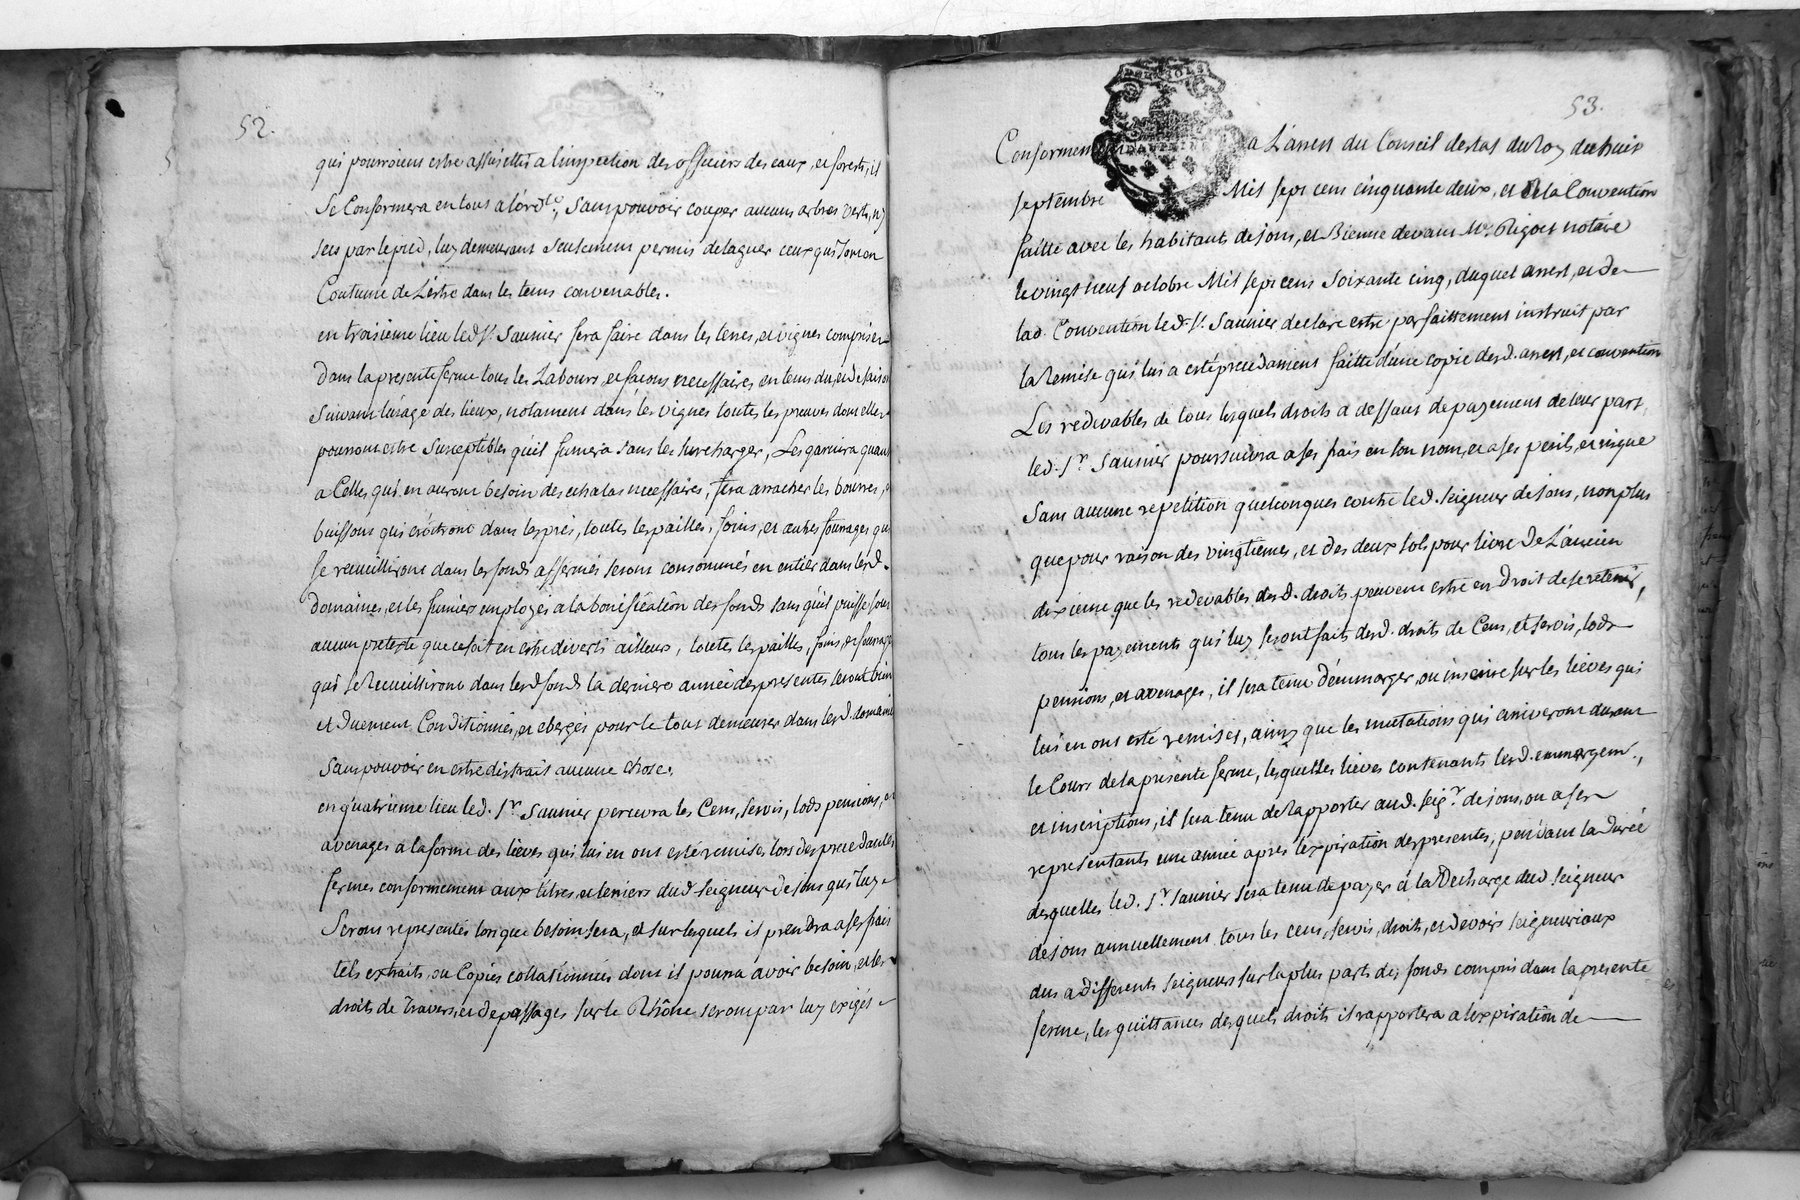 52.
qui pourroient estre assujettis a l'inspection des officiers des eaux, et forests, il
se Conformera en tout a l'ord.ce, sans pouvoir couper aucuns arbres verts, ny
secs par le pied, luy demeurant seulement permis delaguer ceux qui sont en
Coutume de L'estre dans les tems convenables.
en troisieme lieu led. Sr. Saunier fera faire dans les terres, et vignes comprises
dans la presente ferme tous les Labours, et facons necessaires en tems du, et de saison
suivant l'usage des lieux, notament dans les vignes toutes les preuves dont elles
pourront estre susceptibles qu'il fumera sans les surcharger, Les garnira quant
a Celles qui en auront besoin des echalas necessaires, fera arracher les bourres,
buissons qui croitront dans les prés, toutes les pailles, foins, et autres fourrages qui
se recueilliront dans les fonds affermés seront consommés en entier dans lesd.
domaines, et les fumiers employés a la bonification des fonds sans qu'il puisse sous
aucun pretexte que ce soit en estre diverti ailleurs, toutes les pailles, foins, et fourrages
qui se Recueilliront dans lesd. fonds la derniere année des presentes seront bien
et duement Conditionnés, et ebergés pour le tout demeurer dans lesd. domaines
sans pouvoir en estre distrait aucune chose.
en quatrieme lieu led. Sr. Saunier percevra les Cens, servis, lods pensions, et
avenages a la forme des lieves qui lui en ont esté remises lors des precedantes
fermes conformement aux titres, et terriers dud. Seigneur de Jons qui luy
seront representés lorsque besoin sera, et sur lesquels il prendra a ses frais
tels extraits, ou Copies collationnées dont il pourra avoir besoin, et les
droits de Travers, et de passages sur le Rhône seront par luy exigés
53.
Conformement a L'arrest du Conseil destat du Roy du huit
septembre Mil sept cens cinquante deux, et de la Convention
faitte avec les habitants de Jons, et Bienne devant Me. Rigoet notaire
le vingt neuf octobre Mil sept cens soixante cinq, duquel arrest, et de
lad. Convention led. Sr. Saunier declare estre parfaittement instruit par
la Remise qui lui a esté precedament faitte d'une copie desd. arrest, et convention
Les redevables de tous lesquels droits a deffaut de payement de leur part,
led. Sr. Saunier poursuivra a ses frais en son nom, et a ses perils, et risque
sans aucune repetition quelconques contre led. seigneur de Jons, non plus
que pour raison des vingtiemes, et des deux sols pour livre de L'ancien
dixieme que les redevables desd. droits peuvent estre en droit de se retenir,
tous les payements qui luy seront faits desd. droits de Cens, et servis, lods
pensions, et avenages, il sera tenu d'emmarger, ou inscrire sur les lieves qui
lui en ont esté remises, ainsy que les mutations qui arriveront durant
le Cours de la presente ferme, lesquelles lieves contenants lesd. emmargem.,
et inscriptions, il sera tenu de Rapporter aud. seigr. de Jons, ou a ses
representants une année apres l'expiration des presentes, pendant la durée
desquelles led. Sr. Saunier sera tenu de payer a la Decharge dud. seigneur
de Jons annuellement tous les cens, servis, droits, et devoirs seigneuriaux
dus a differents seigneurs sur la plus part des fonds compris dans la presente
ferme, les quittances desquels droits il rapportera a l'expiration de